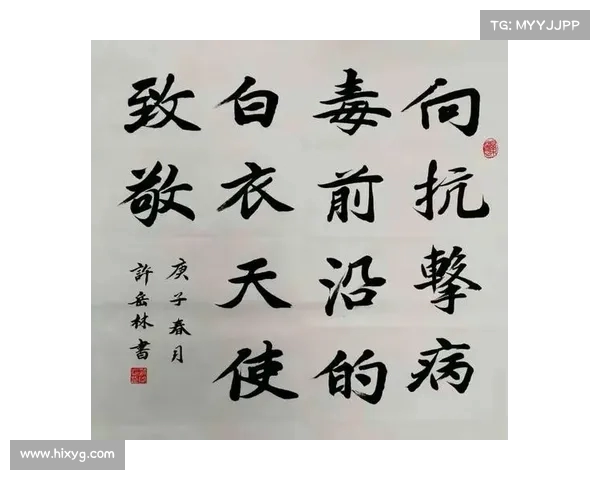 TG: MYYJJPP
向抗擊病
毒前沿的
白衣天使
致敬
庚子春月
許岳林書
www.hixyg.com